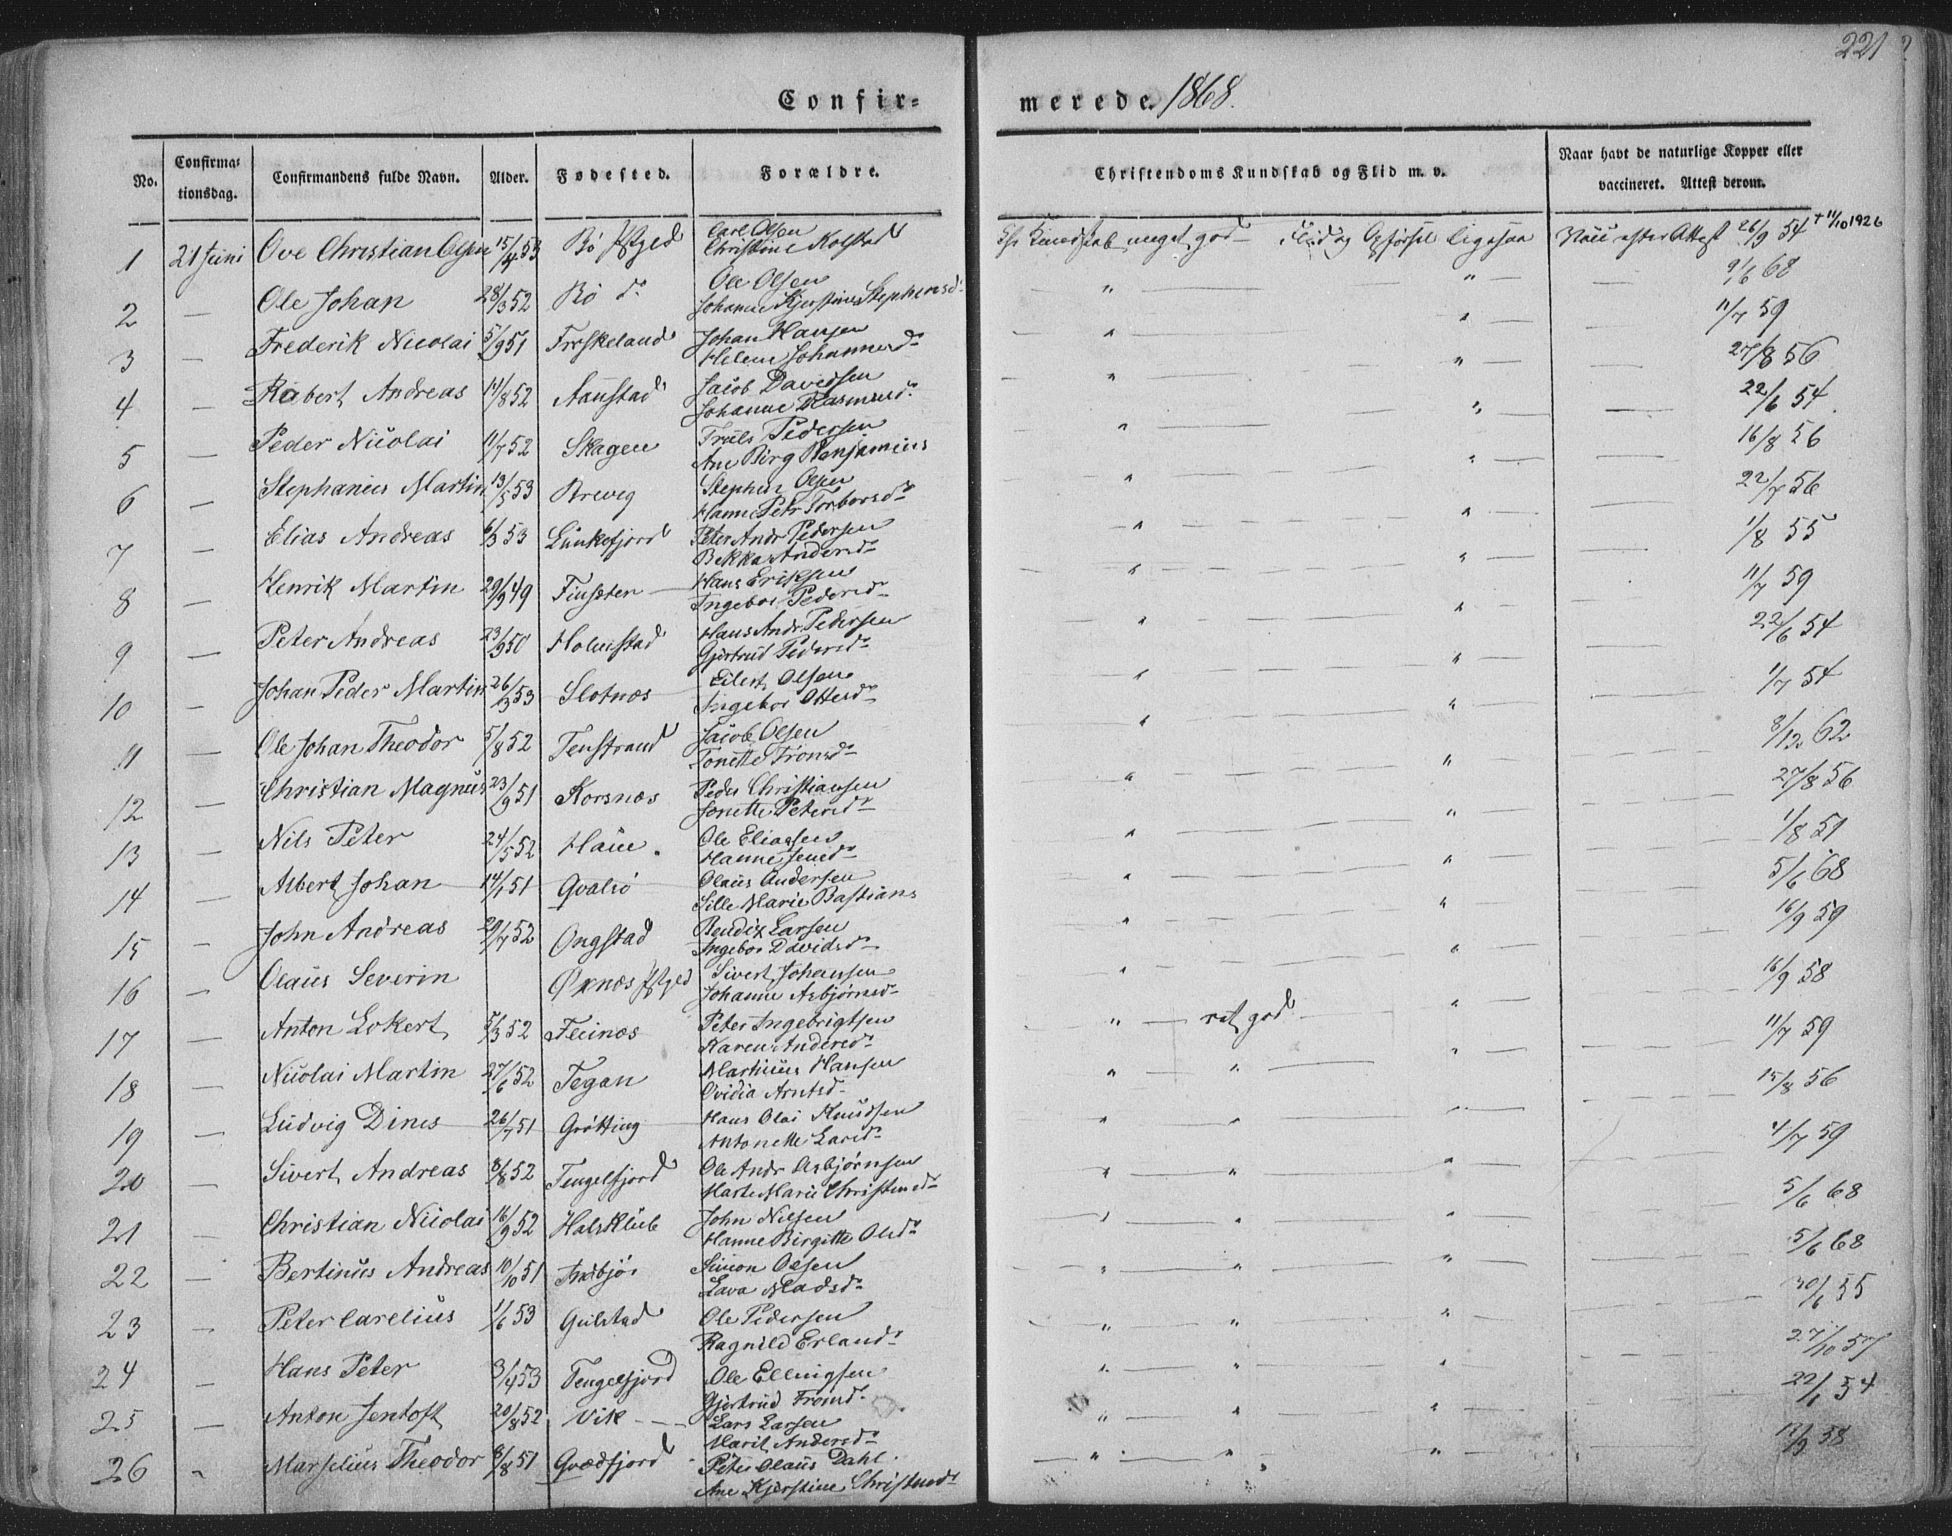 221
Confirmerede. 1868.
No. Confirmationsdag. Confirmandens fulde Navn. Alder. Fødested. Forældre. Christendoms Kundskab og Flid m. v. Naar havt de naturlige Kopper eller vaccineret. Attest derom.
1 21 Juni Ove Christian Olsen 15/4 53 Bø Carl Olsen Christine Kolstad Kundskab meget god Flid og Opførsel ligesaa Vacc efter Attest 26/9 54 † 11/10 1926
2 — Ole Johan 28/3 52 Bø do Ole Olsen Johanne Kjerstine Stephensd. " " 9/6 68
3 — Frederik Nicolai 5/9 51 Froskeland Johan Hansen Helene Johannesd. " " 11/7 59
4 — Robert Andreas 14/8 52 Aanstad Jacob Davidsen Johanne Rasmusd. " " 27/8 56
5 — Peder Nicolai 11/7 52 Skagen Truls Pedersen Ane Birg Benjamins " " 22/6 54
6 — Stephanus Martin 13/5 53 Brevig Stephen Olsen Hanne Petr Torborsd. " " 16/8 56
7 — Elias Andreas 6/3 53 Lunkefjord Peter Andr Pedersen Bekka Andersd. " " 22/7 56
8 — Henrik Martin 29/9 49 Finsæter Hans Eriksen Ingebor Pedersd. " " 1/8 55
9 — Peter Andreas 23/9 50 Holmstad Hans Andr. Pedersen Gjertrud Pedersd. " " 11/7 59
10 — Johan Peder Martin 26/3 53 Slotnæs Eilert Olsen Ingebor Ottersd. " " 22/6 54
11 — Ole Johan Theodor 5/8 52 Tenstrand Jacob Olsen Tonette Tronsd. " " 1/7 54
12 — Christian Magnus 23/9 51 Korsnæs Peder Christiansen Jonette Petersd. " " 8/12 62
13 — Nils Peter 24/5 52 Haue Ole Eliassen Hanne Jensd. " " 27/8 56
14 — Albert Johan 14/1 51 Qvalsø Olaus Andersen Sille Marie Bastians " " 1/8 51
15 — John Andreas 29/7 52 Ongstad Bendix Larsen Ingebor Davidsd. " " 5/6 68
16 — Olaus Severin Øxnæs Sivert Johansen Johanne Asbjørnsd. " " 16/9 59
17 — Anton Lokert 5/3 52 Fleinæs Peter Ingebrigtsen Karen Andersd. " ret god " 16/9 58
18 — Nicolai Martin 27/6 52 Tegan Martinus Hansen Ovidia Arntsd. " " " 11/7 59
19 — Ludvig Dines 26/7 51 Grøtting Hans Olai Knudsen Antonette Larsd. " " 15/8 56
20 — Sivert Andreas 8/8 52 Tengelfjord Ole Andr Asbjørnsen Marte Marie Christensd. " " " 4/7 59
21 — Christian Nicolai 16/9 52 Halsklub John Nilsen Hanne Birgitte Olsd. " " 5/6 68
22 — Bertinus Andreas 10/10 51 Simon Olsen Lava Madsd. " " " 5/6 68
23 — Peter Carelius 1/6 53 Gulstad Ole Pedersen Ragnild Erlands " " " 30/6 55
24 — Hans Peter 3/4 53 Tengelfjord Ole Ellingsen Gjertrud Tronsd. " " " 27/10 57
25 — Anton Jentoft 20/8 52 Vik Lars Larsen Marit Andersd. " " " 22/6 54
26 " Marselius Theodor 8/8 51 Qvædfjord Peter Olaus Dahl. Ane Kjerstine Christensd. " " " 17/9 58